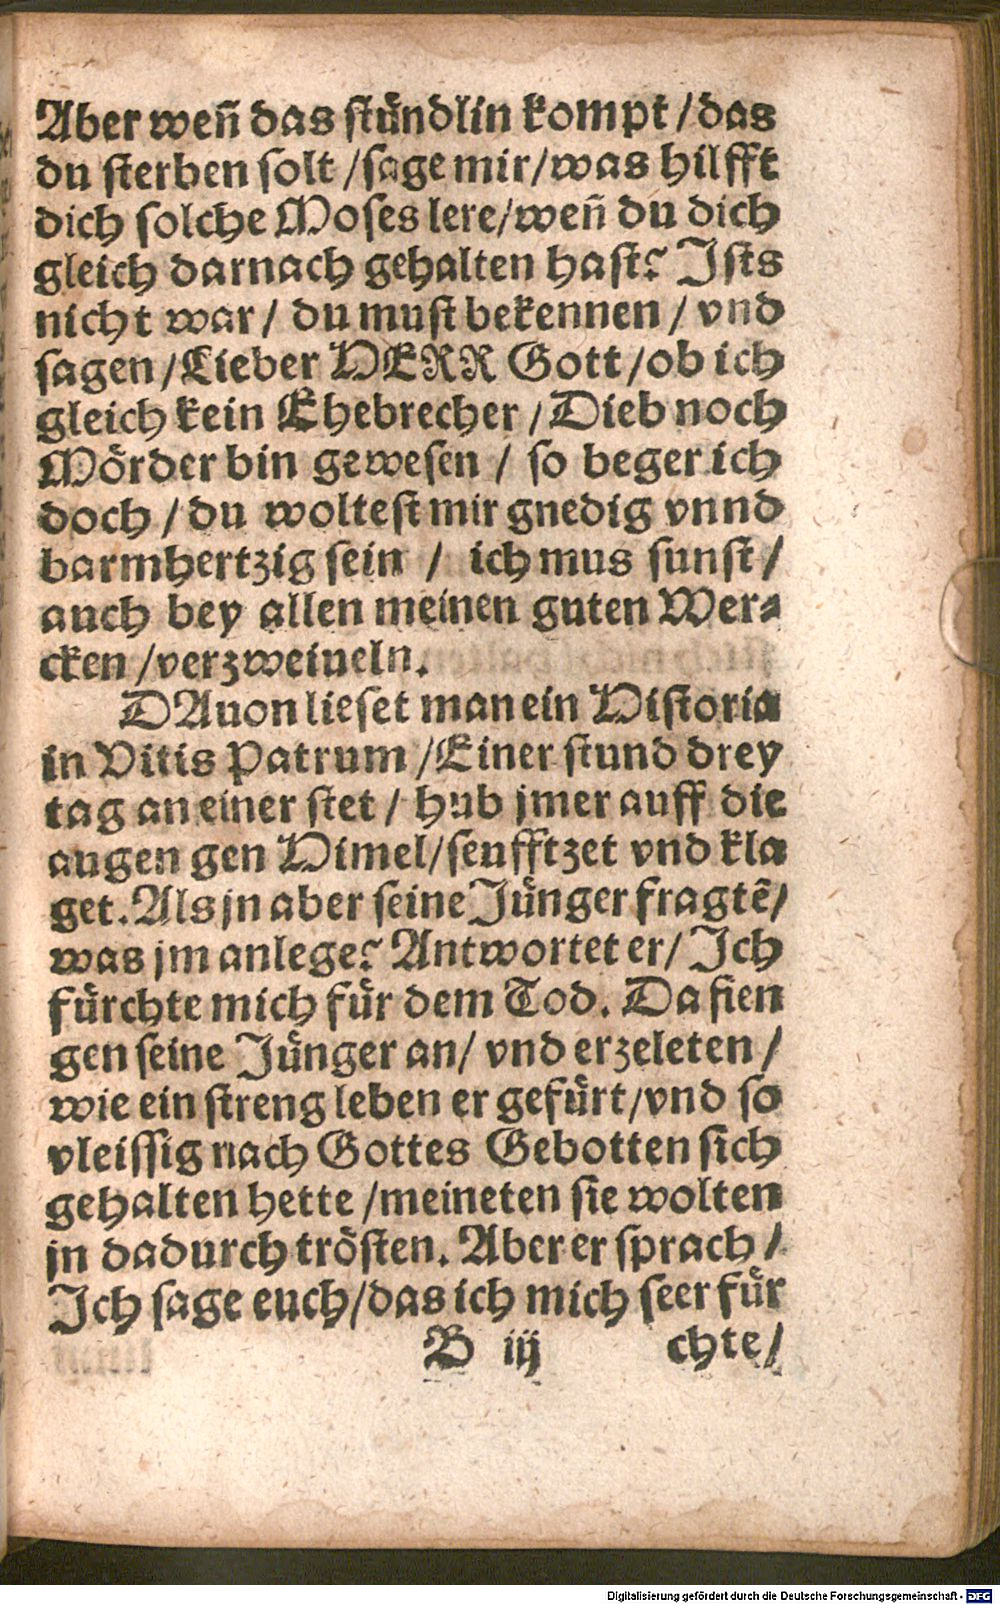 Aber weñ das stuͤndlin kompt / das
du sterben solt / sage mir / was hilfft
dich solche Moses lere / weñ du dich
gleich darnach gehalten hast? Ists
nicht war / du must bekennen / vnd
sagen / Lieber HERR Gott / ob ich
gleich kein Ehebrecher / Dieb noch
Moͤrder bin gewesen / so beger ich
doch / du woltest mir gnedig vnnd
barmhertzig sein / ich mus sunst /
auch bey allen meinen guten Wer⸗
cken / verzweiueln.
DAuon lieset man ein Historia
in Vitis Patrum / Einer stund drey
tag an einer stet / hub jmer auff die
augen gen Himel / seufftzet vnd kla
get. Als jn aber seine Juͤnger fragtẽ /
was jm anlege? Antwortet er / Ich
fuͤrchte mich fuͤr dem Tod. Da fien
gen seine Juͤnger an / vnd erzeleten /
wie ein streng leben er gefuͤrt / vnd so
vleissig nach Gottes Gebotten sich
gehalten hette / meineten sie wolten
jn dadurch troͤsten. Aber er sprach /
Ich sage euch / das ich mich seer fuͤr
B iij chte /
Digitalisierung gefördert durch die Deutsche Forschungsgemeinschaft - DFG